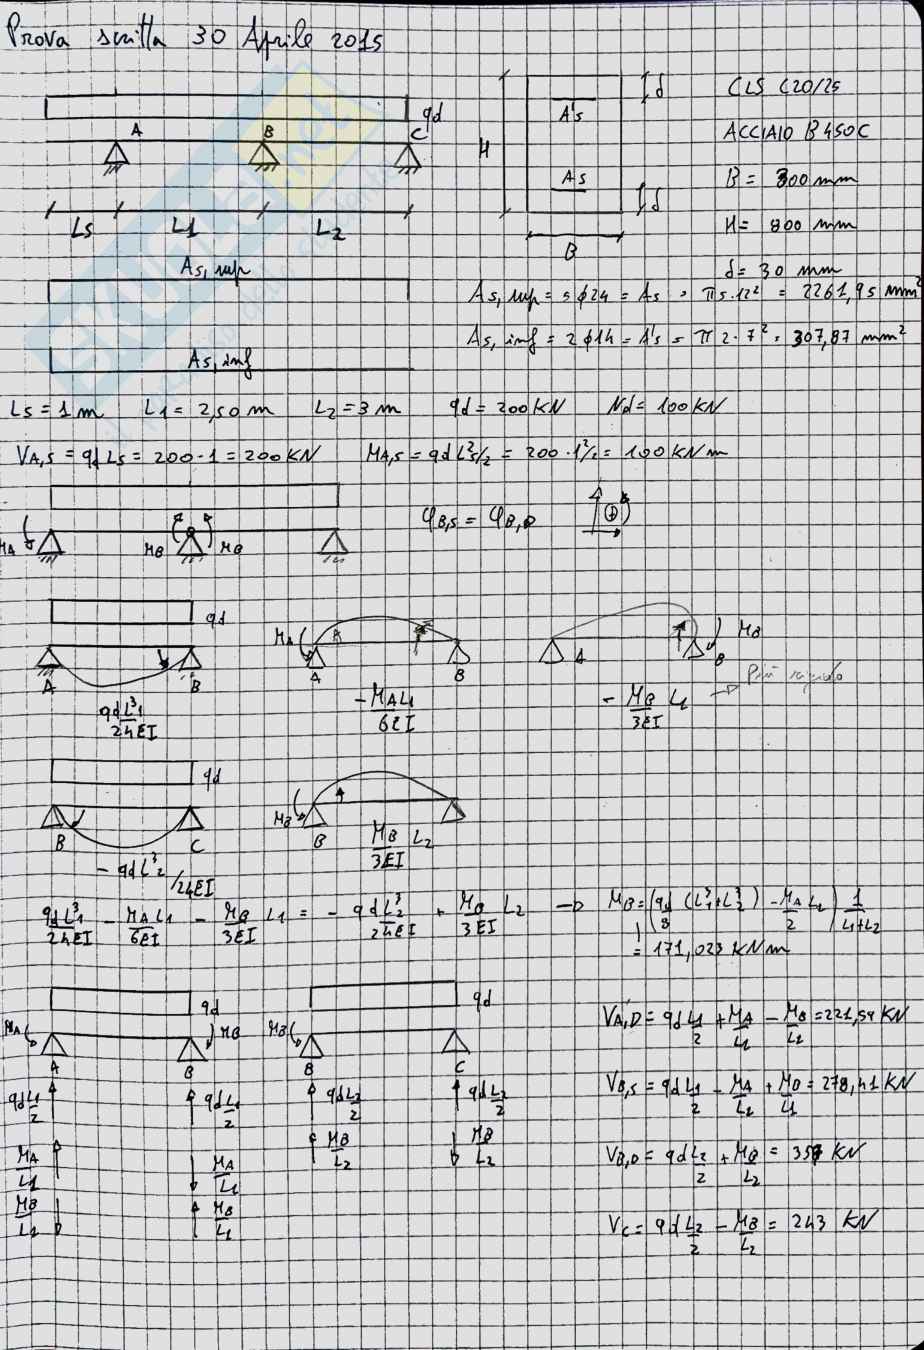 Prova scritta 30 Aprile 2015
qd
A
B
C
Ls
L1
L2
H
A's
As
d
d
B
CLS C20/25
ACCIAIO B450C
B = 300 mm
H = 800 mm
d = 30 mm
As, sup
As, inf
As, sup = 5ϕ24 = As = π5·12² = 2261,95 mm²
As, inf = 2ϕ14 = A's = π 2·7² = 307,87 mm²
Ls = 1 m L1 = 2,50 m L2 = 3 m qd = 200 KN Nd = 100 KN
VA,S = qd Ls = 200·1 = 200 KN MA,S = qd Ls²/2 = 200·1²/2 = 100 KN m
MA
MB
MB
φB,S = φB,D
qd
A
B
qd L1³/24EI
MA
A
A
B
- MA L1/6EI
A
B
MB
- MB/3EI L1 → Più rigido
qd
B
C
- qd L2³/24EI
MB
B
MB/3EI L2
qd L1³/24EI - MA L1/6EI - MB/3EI L1 = - qd L2³/24EI + MB/3EI L2 → MB = (qd/8 (L1³+L2³) - MA/2 L1) 1/L1+L2
= 171,023 KNm
MA
qd
MB
A
B
MB
qd
B
C
qd L1/2
qd L1/2
qd L2/2
qd L2/2
MA/L1
MA/L1
MB/L2
MB/L2
MB/L1
MB/L1
VA,D = qd L1/2 + MA/L1 - MB/L1 = 221,59 KN
VB,S = qd L1/2 - MA/L1 + MB/L1 = 278,41 KN
VB,D = qd L2/2 + MB/L2 = 357 KN
VC = qd L2/2 - MB/L2 = 243 KN